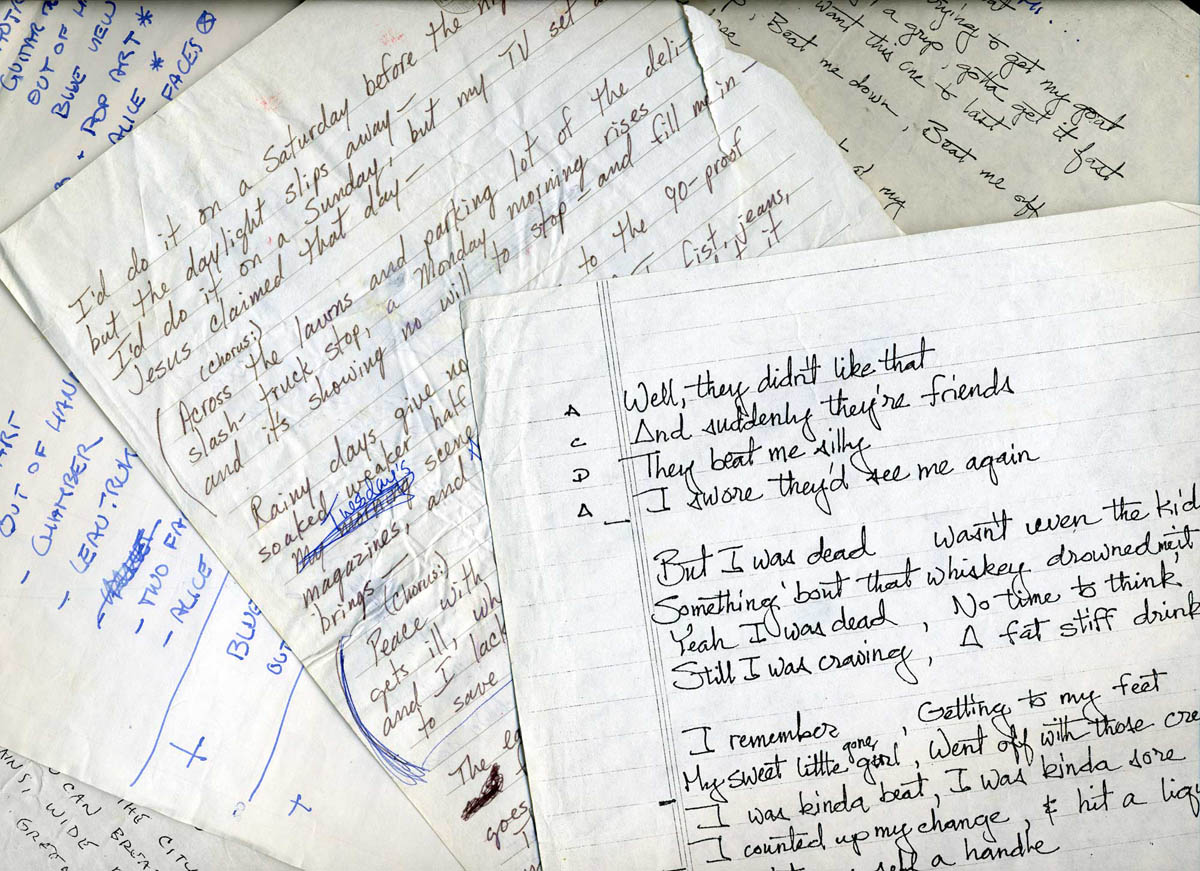 GUITAR
OUT OF
BLUE VIEW
POP ART *
ALICE *
FACES
I'd do it on a Saturday before the
but the daylight slips away—
I'd do it on a Sunday, but my TV set
Jesus claimed that day—
(Chorus:)
Across the lawns and parking lot of the deli-
slash-truck stop, a Monday morning rises
and it's showing no will to stop—and fill me in—
Rainy days give no
to the 90-proof
soaked weaker half
fist, jeans,
it
Tuesday's
My morning scene
magazines, and
brings—
(Chorus:)
Peace with
gets ill,
and I lack
to save
The
goes
I
trying to get my goat
a grip, gotta get it fast
want this one to last
Beat me down, Beat me off
my
OUT OF HAND
- CHAMBER
- LEAUTRUK
- TWO FA
- ALICE
BLUE
BUT
THE CITY
CAN BREA
WIDE
GREE
A Well, they didn't like that
C And suddenly they're friends
D They beat me silly
A I swore they'd see me again
But I was dead wasn't even the kid
Something 'bout that whiskey drowned me it
Yeah I was dead, No time to think
Still I was craving, A fat stiff drink
I remember, Getting to my feet
My sweet little girl gone, Went off with those cre
I was kinda beat, I was kinda sore
I counted up my change, & hit a liqu
a handle